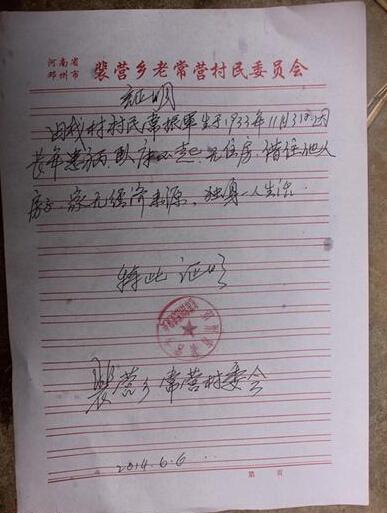 河南省
邓州市
裴营乡老常营村民委员会
证明
由我村村民常振军生于1933年11月3日因
老年患病卧床不起无住房借住他人
房子家无经济来源独身一人生活
特此证明
裴营乡常营村委会
2014.6.6
第 页